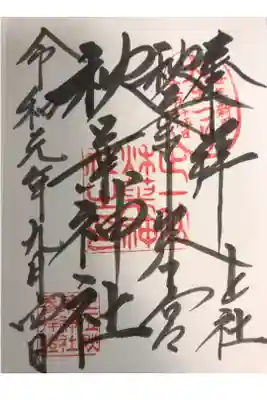 奉拝 上社
秋葉山本宮
秋葉神社
令和元年九月四日